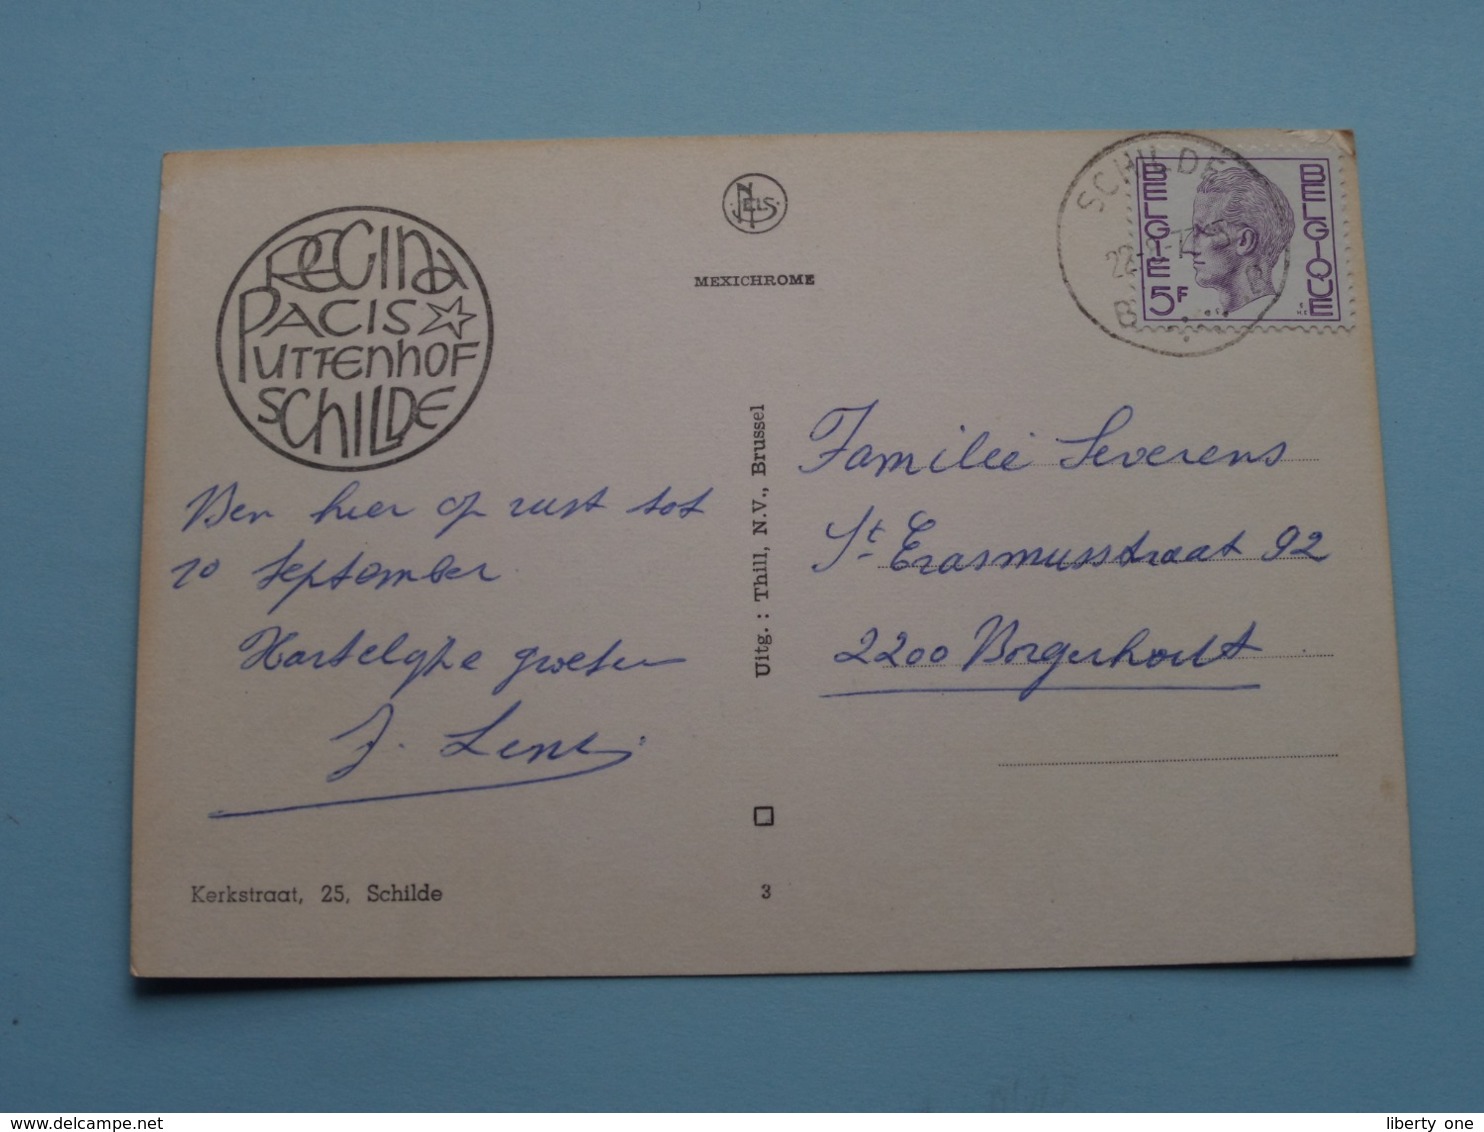 REGINA
PACIS
PUTTENHOF
SCHILDE
NELS
MEXICHROME
SCHILDE
B B
BELGIE 5F
BELGIQUE
Ben hier op rust tot
10 September
Hartelijke groeten
J.
Kerkstraat, 25, Schilde
Uitg. : Thill, N.V., Brussel
3
Familie Severens
St. Erasmusstraat 92
2200 Borgerhout
liberty one